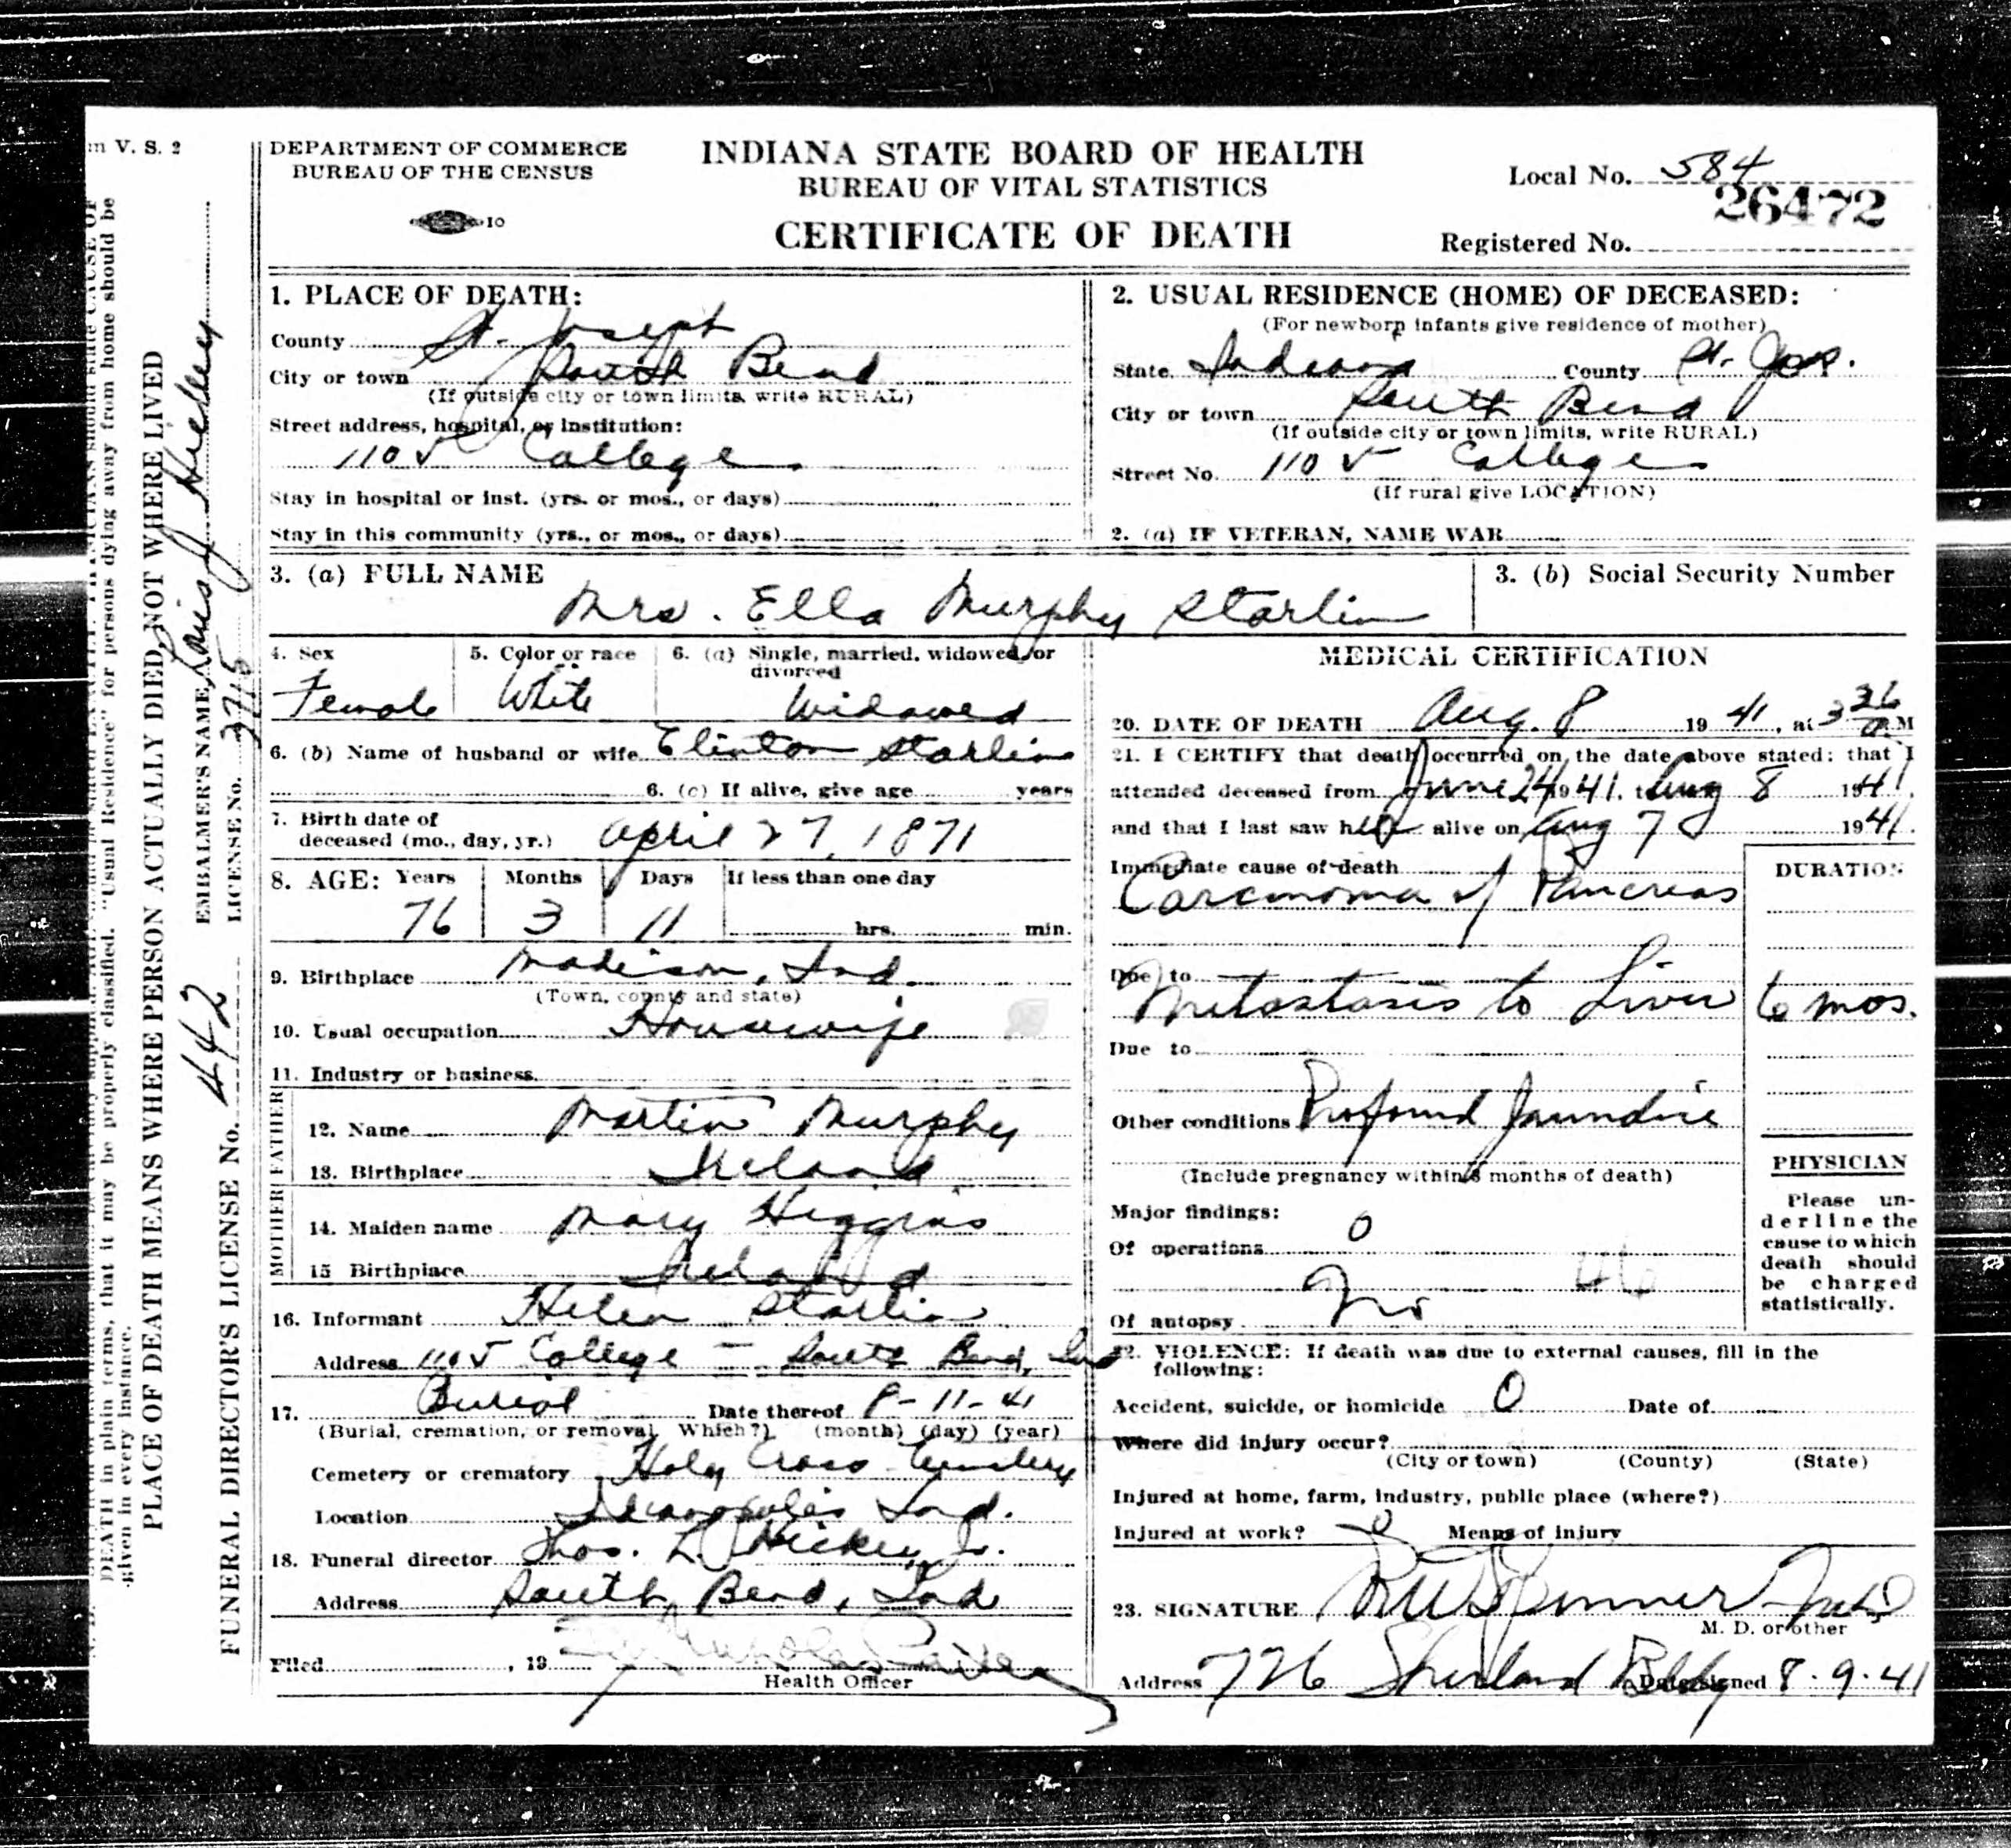 m V. S. 2
DEPARTMENT OF COMMERCE
BUREAU OF THE CENSUS
10
INDIANA STATE BOARD OF HEALTH
BUREAU OF VITAL STATISTICS
CERTIFICATE OF DEATH
Local No. 584
26472
Registered No.
1. PLACE OF DEATH:
County St. Joseph
City or town South Bend
(If outside city or town limits, write RURAL)
Street address, hospital, or institution:
1105 College
Stay in hospital or inst. (yrs. or mos., or days)
Stay in this community (yrs., or mos., or days)
2. USUAL RESIDENCE (HOME) OF DECEASED:
(For newborn infants give residence of mother)
State Indiana County St. Jos.
City or town South Bend
(If outside city or town limits, write RURAL)
Street No. 1105 College
(If rural give LOCATION)
2. (a) IF VETERAN, NAME WAR
3. (a) FULL NAME
Mrs. Ella Murphy Starlin
3. (b) Social Security Number
4. Sex
Female
5. Color or race
White
6. (a) Single, married, widowed, or divorced
Widowed
6. (b) Name of husband or wife Clinton Starlin
6. (c) If alive, give age years
7. Birth date of
deceased (mo., day, yr.) April 27, 1871
8. AGE: Years Months Days If less than one day
76 3 11 hrs. min.
9. Birthplace Madison, Ind.
(Town, county and state)
10. Usual occupation Housewife
11. Industry or business
FATHER
12. Name Martin Murphy
13. Birthplace Ireland
MOTHER
14. Maiden name Mary Higgins
15 Birthplace Ireland
16. Informant Helen Starlin
Address 1105 College - South Bend, Ind
17. Burial Date thereof 8-11-41
(Burial, cremation, or removal. Which?) (month) (day) (year)
Cemetery or crematory Holy Cross Cemetery
Location Indianapolis Ind.
18. Funeral director Thos. L. Hickey Jr.
Address South Bend, Ind
Filed , 19
Health Officer
MEDICAL CERTIFICATION
20. DATE OF DEATH Aug. 8 19 41, at 3 36 a M
21. I CERTIFY that death occurred on the date above stated; that I
attended deceased from June 24 1941, to Aug 8 1941,
and that I last saw her alive on Aug 7 1941.
Immediate cause of death
Carcinoma of Pancreas
DURATION
Due to
Metastasis to Liver 6 mos.
Due to
Other conditions Profound Jaundice
(Include pregnancy within 3 months of death)
Major findings:
Of operations 0
46
Of autopsy No
PHYSICIAN
Please un-
derline the
cause to which
death should
be charged
statistically.
22. VIOLENCE: If death was due to external causes, fill in the
following:
Accident, suicide, or homicide 0 Date of
Where did injury occur?
(City or town) (County) (State)
Injured at home, farm, industry, public place (where?)
Injured at work? 0 Means of injury
23. SIGNATURE
M. D. or other
Address 726 Sherland Bldg Date signed 8-9-41
DEATH in plain terms, that it may be properly classified. "Usual Residence" for persons dying away from home should be
given in every instance.
PLACE OF DEATH MEANS WHERE PERSON ACTUALLY DIED, NOT WHERE LIVED
EMBALMER'S NAME Louis J
LICENSE No. 3715
FUNERAL DIRECTOR'S LICENSE No. 442